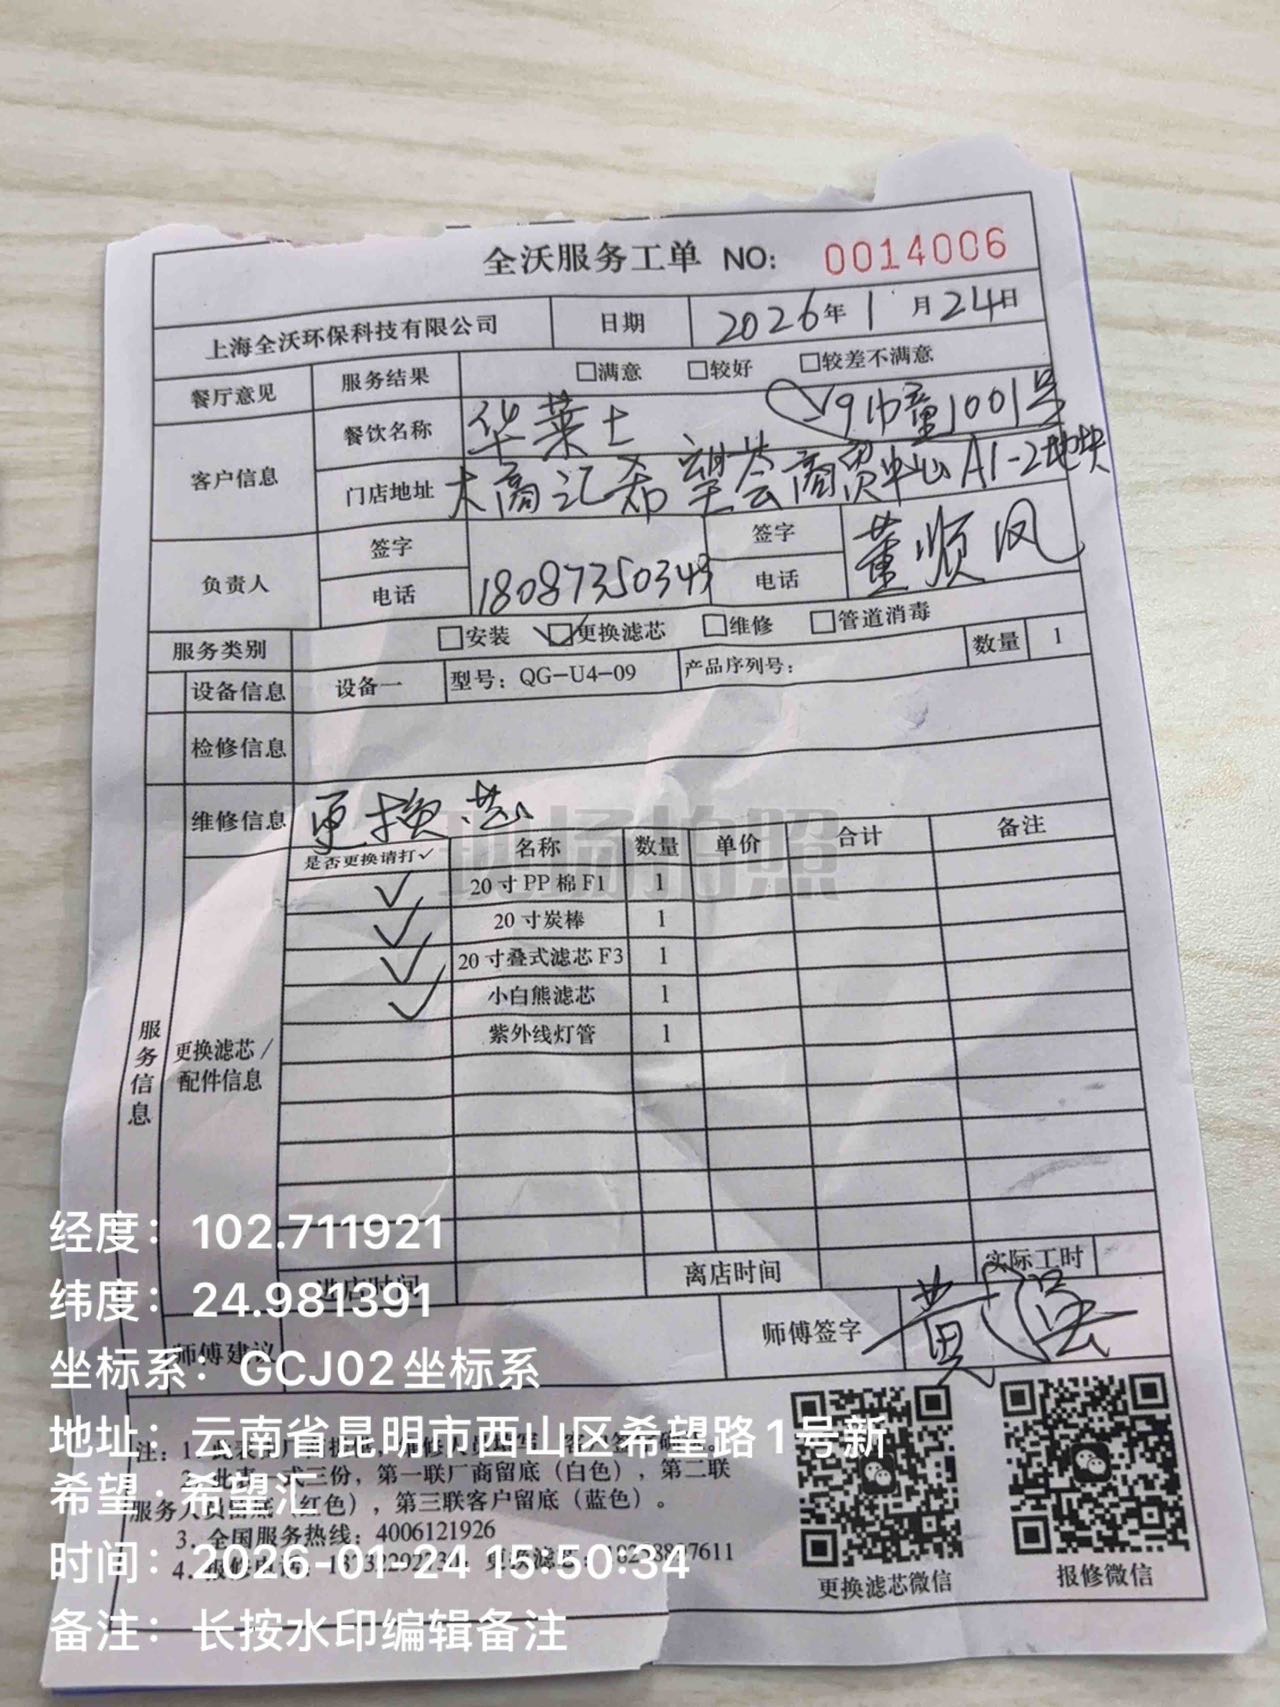 全沃服务工单 NO: 0014006
上海全沃环保科技有限公司 日期 2026年1月24日
餐厅意见 服务结果 □满意 □较好 □较差不满意
客户信息 餐饮名称 华莱士 1001号
门店地址 大商汇希望荟商贸中心A1-2地块
负责人 签字 签字 董顺凤
电话 18087350343 电话
服务类别 □安装 ☑更换滤芯 □维修 □管道消毒
设备信息 设备一 型号：QG-U4-09 产品序列号： 数量 1
检修信息
维修信息 更换芯
现场拍照
服务信息
更换滤芯/配件信息
是否更换请打✓ 名称 数量 单价 合计 备注
✓ 20寸PP棉F1 1
✓ 20寸炭棒 1
✓ 20寸叠式滤芯F3 1
✓ 小白熊滤芯 1
紫外线灯管 1
进店时间 离店时间 实际工时
师傅建议 师傅签字 黄
注：1.
2. 式三份，第一联厂商留底（白色），第二联
服务人员留底（红色），第三联客户留底（蓝色）。
3. 全国服务热线：4006121926
4. 更换滤芯
更换滤芯微信 报修微信
经度：102.711921
纬度：24.981391
坐标系：GCJ02坐标系
地址：云南省昆明市西山区希望路1号新
希望·希望汇
时间：2026-01-24 15:50:34
备注：长按水印编辑备注